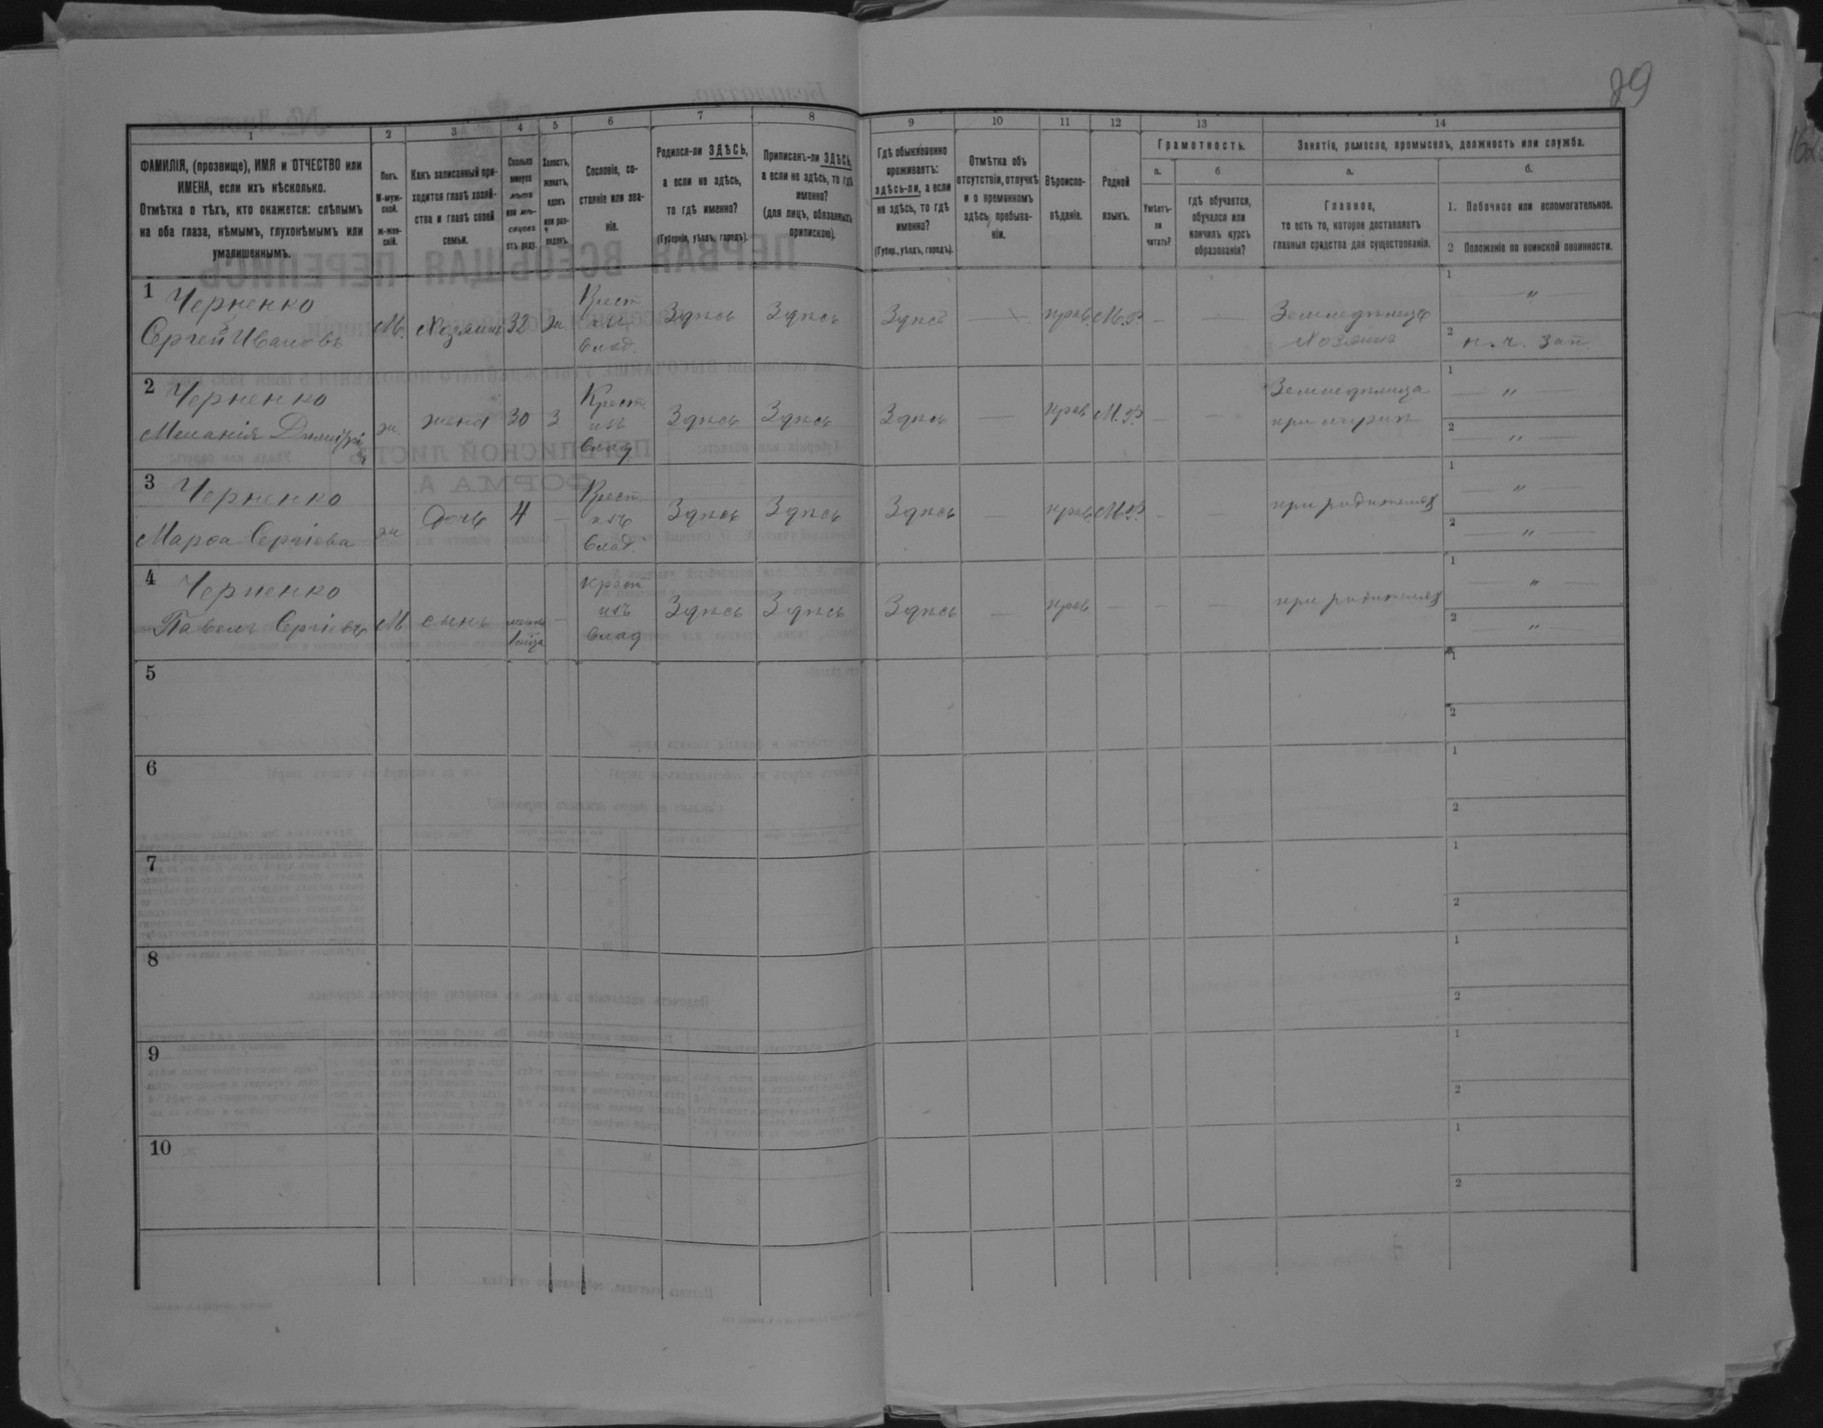 89
1
2
3
4
5
6
7
8
9
10
11
12
13
14
ФАМИЛІЯ, (прозвище), ИМЯ и ОТЧЕСТВО или
ИМЕНА, если ихъ нѣсколько.
Отмѣтка о тѣхъ, кто окажется: слѣпымъ
на оба глаза, нѣмымъ, глухонѣмымъ или
умалишеннымъ.
Полъ.
М-муж-
ской.
ж-жен-
скій.
Какъ записанный при-
ходится главѣ хозяй-
ства и главѣ своей
семьи.
Сколько
минуло
лѣтъ
или мѣ-
сяцевъ
отъ роду.
Холостъ,
женатъ,
вдовъ
или раз-
веденъ.
Сословіе, со-
стояніе или зва-
ніе.
Родился-ли ЗДѢСЬ,
а если не здѣсь,
то гдѣ именно?
(Губернія, уѣздъ, городъ).
Приписанъ-ли ЗДѢСЬ,
а если не здѣсь, то гдѣ
именно?
(для лицъ, обязанныхъ
припискою).
Гдѣ обыкновенно
проживаетъ:
здѣсь-ли, а если
не здѣсь, то гдѣ
именно?
(Губер., уѣздъ, городъ).
Отмѣтка объ
отсутствіи, отлучкѣ
и о временномъ
здѣсь пребыва-
ніи.
Вѣроиспо-
вѣданіе.
Родной
языкъ.
Грамотность.
а.
Умѣетъ-
ли
читать?
б
гдѣ обучается,
обучался или
кончилъ курсъ
образованія?
Занятіе, ремесло, промыселъ, должность или служба.
а.
Главное,
то есть то, которое доставляетъ
главныя средства для существованія.
б.
1. Побочное или вспомогательное.
2 Положеніе по воинской повинности.
1 Черненко
Сергѣй Ивановъ
М. Хозяинъ 32 ж
Крест
изъ
влад.
Здѣсь Здѣсь Здѣсь — прав. М.Р. — —
Земледѣлецъ
хозяинъ
1 — " —
2 н. ч. зап.
2 Черненко
Меланія Дмитрі
ж жена 30 З
Крест
изъ
влад
Здѣсь Здѣсь Здѣсь — прав М.Р. — —
Земледѣлица
при мужѣ
1 — " —
2 — " —
3 Черненко
Марѳа Сергіева
ж дочь 4 —
Крест
изъ
влад.
Здѣсь Здѣсь Здѣсь — прав. М.Р. — —
при родителяхъ
1 — " —
2 — " —
4 Черненко
Павелъ Сергіевъ
М сынъ —
крест
изъ
влад
Здѣсь Здѣсь Здѣсь — прав — — —
при родителяхъ
1 — " —
2 — " —
5
1
2
6
1
2
7
1
2
8
1
2
9
1
2
10
1
2